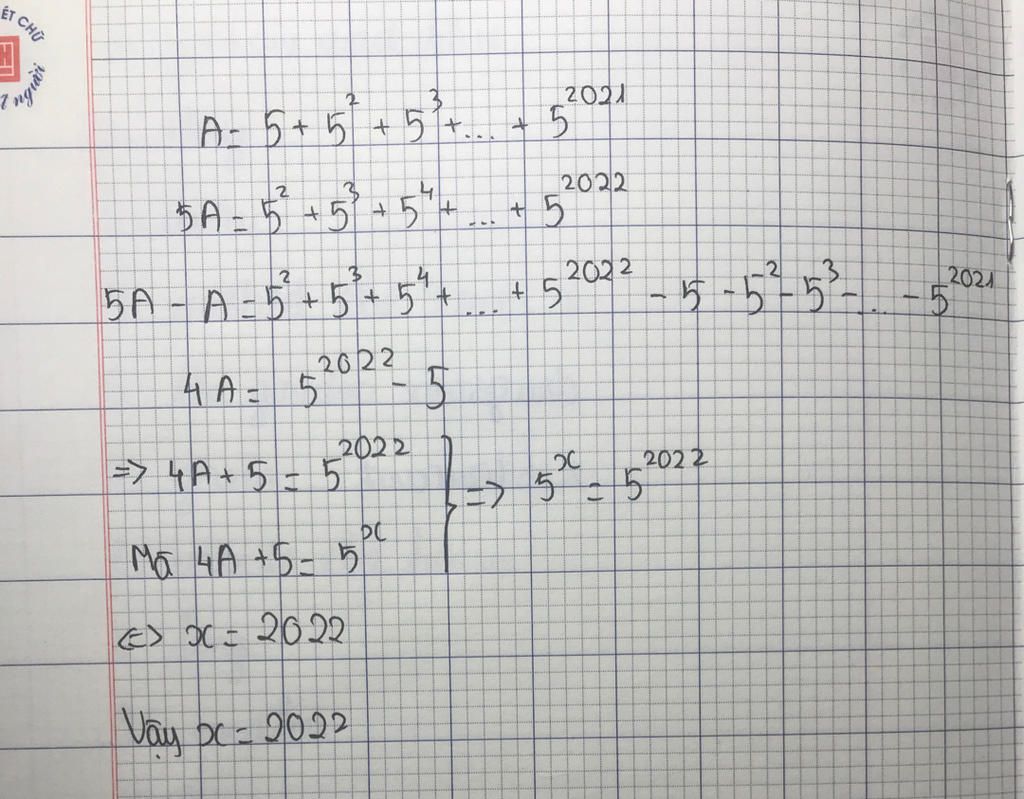 ẾT CHỮ
người
A = 5 + 5² + 5³ + ... + 5²⁰²¹
5A = 5² + 5³ + 5⁴ + ... + 5²⁰²²
5A - A = 5² + 5³ + 5⁴ + ... + 5²⁰²² - 5 - 5² - 5³ - ... - 5²⁰²¹
4A = 5²⁰²² - 5
=> 4A + 5 = 5²⁰²² } => 5ˣ = 5²⁰²²
Mà 4A + 5 = 5ˣ
<=> x = 2022
Vậy x = 2022